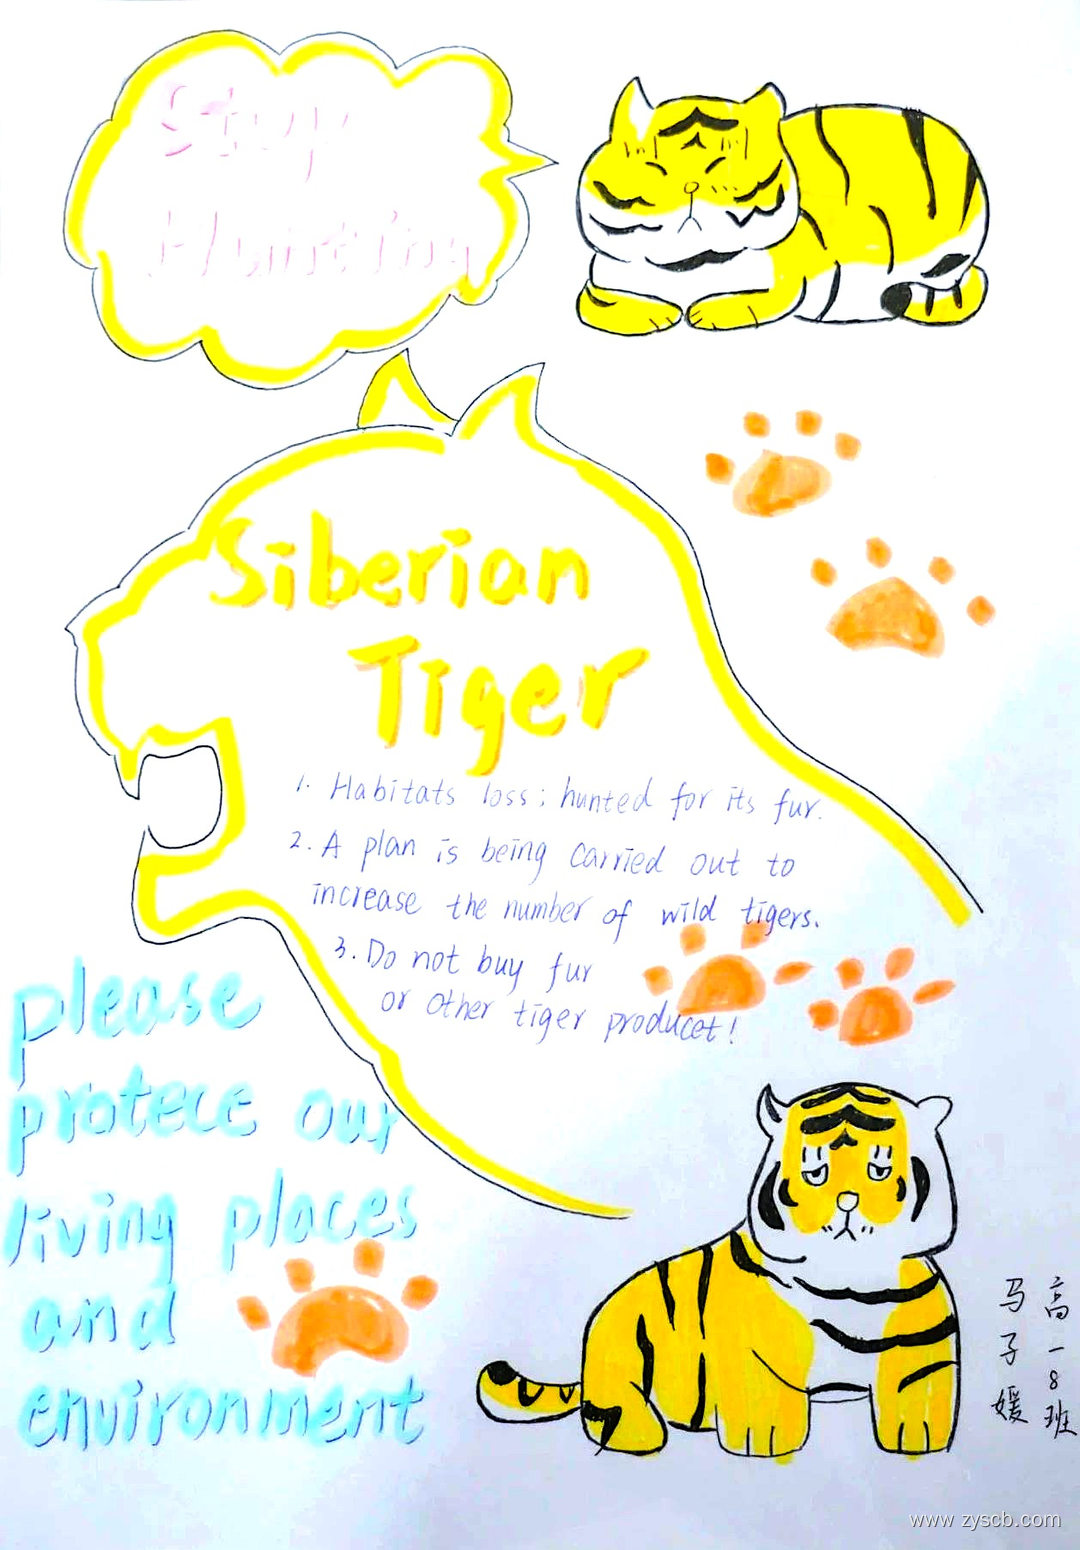 Stop
Hunting
Siberian
Tiger
1. Habitats loss; hunted for its fur.
2. A plan is being carried out to
increase the number of wild tigers.
3. Do not buy fur
or other tiger producet!
please
protece our
living places
and
environment
高一8班
马子媛
www.zyscb.com